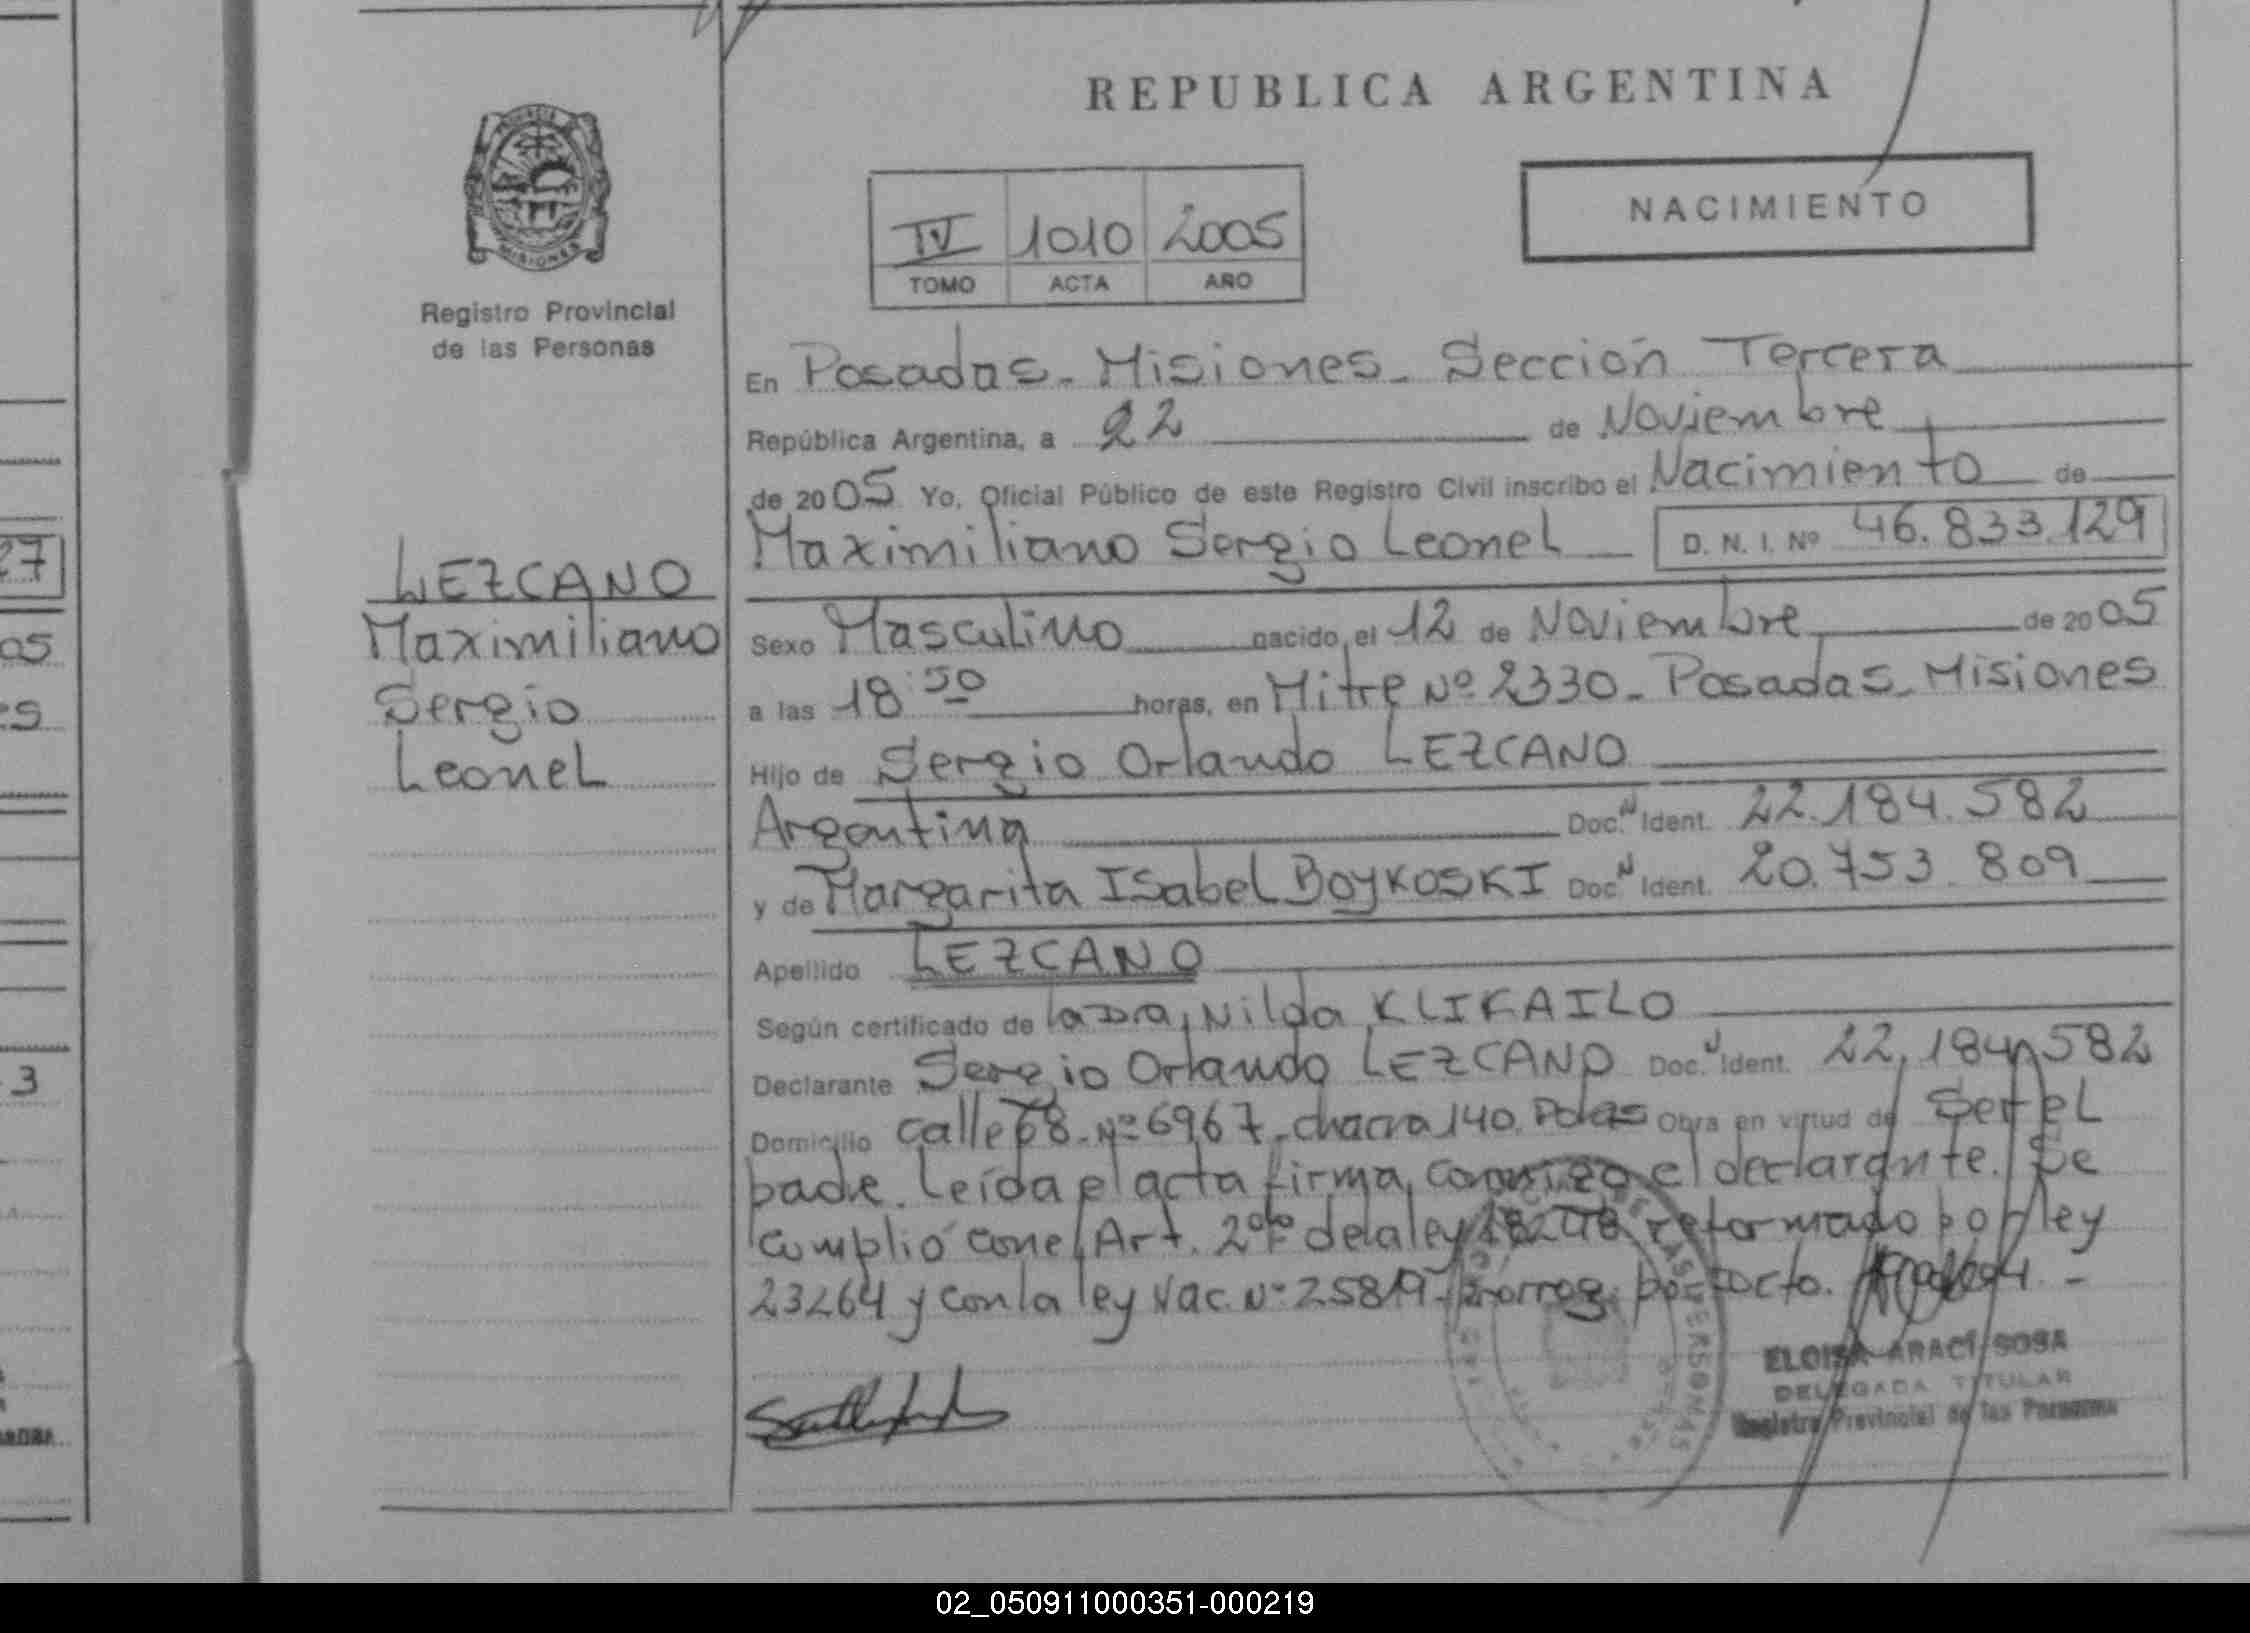 REPUBLICA ARGENTINA
NACIMIENTO
IV 1010 2005
TOMO ACTA AÑO
MISIONES
Registro Provincial
de las Personas
LEZCANO
Maximiliano
Sergio
Leonel
En Posadas - Misiones - Sección Tercera
República Argentina, a 22 de Noviembre
de 2005 Yo, Oficial Público de este Registro Civil inscribo el Nacimiento de
Maximiliano Sergio Leonel D. N. I. Nº 46.833.129
Sexo Masculino nacido el 12 de Noviembre de 2005
a las 18:50 horas, en Mitre Nº 2330 - Posadas - Misiones
Hijo de Sergio Orlando LEZCANO
Argentina Doc. N Ident. 22.184.582
y de Margarita Isabel BOYKOSKI Doc. N Ident. 20.753.809
Apellido LEZCANO
Según certificado de la Dra. Nilda KLIKAILO
Declarante Sergio Orlando LEZCANO Doc. N Ident. 22.184.582
Domicilio calle 68 - Nº 6967 - chacra 140. Pdas Obra en virtud de Ser el
padre. Leída el acta firma conmigo el declarante. Se
cumplió con el Art. 2º de la ley 18248 reformado por ley
23264 y con la ley Nac. Nº 25819 - prorrog. por Dcto.
ELOISA ARACI SOSA
DELEGADA TITULAR
Registro Provincial de las Personas
27
05
es
3
02_050911000351-000219